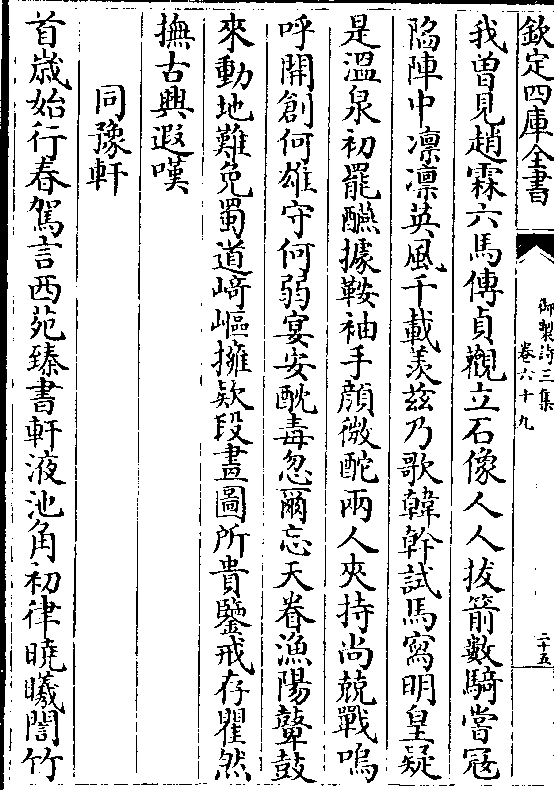 欽定四庫全書
御製詩三集
卷六十九
二十五
我曽見趙霖六馬傳貞觀立石像人人拔箭數騎當冦
陷陣中凛凛英風千載羡兹乃歌韓幹試馬寫明皇疑
是溫泉初罷醼據鞍袖手顔微酡兩人夾持尚兢戰嗚
呼開創何雄守何弱宴安酖毒忽爾忘天眷漁陽鼙鼓
來動地難免蜀道﨑嶇擁欵段畫圖所貴鑒戒存瞿然
撫古興遐嘆
同豫軒
首嵗始行春駕言西苑臻書軒液池角初律曉曦誾竹